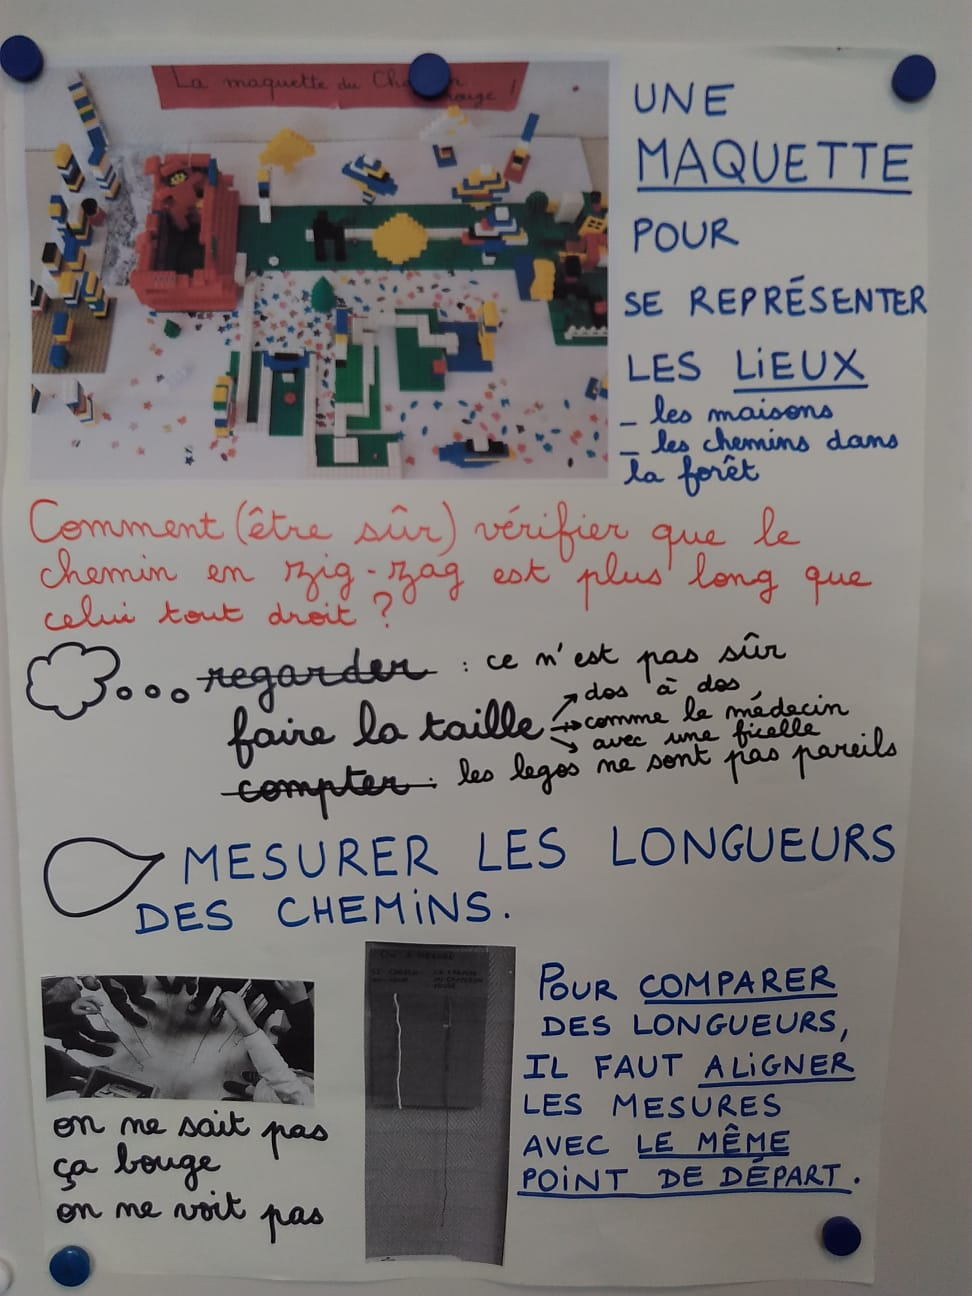 La maquette du
rouge !
UNE
MAQUETTE
POUR
SE REPRÉSENTER
LES LIEUX
_ les maisons
_ les chemins dans
la forêt
Comment (être sûr) vérifier que le
chemin en zig-zag est plus long que
celui tout droit ?
regarder : ce n'est pas sûr
faire la taille → dos à dos
→ comme le médecin
→ avec une ficelle
compter : les legos ne sont pas pareils
MESURER LES LONGUEURS
DES CHEMINS.
on ne sait pas
ça bouge
on ne voit pas
POUR COMPARER
DES LONGUEURS,
IL FAUT ALIGNER
LES MESURES
AVEC LE MÊME
POINT DE DÉPART.